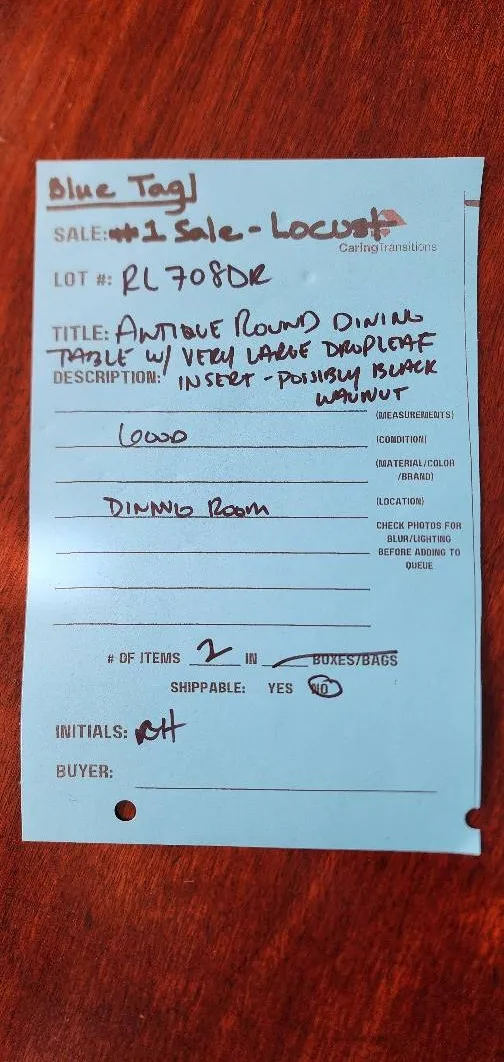 Blue Tag
SALE: #1 Sale - Locust
CaringTransitions
LOT #: RL 708DR
TITLE: ANTIQUE ROUND DINING
TABLE W/ VERY LARGE DROPLEAF
DESCRIPTION: INSERT - POSSIBLY BLACK
WALNUT
(MEASUREMENTS)
GOOD (CONDITION)
(MATERIAL/COLOR
/BRAND)
DINING ROOM (LOCATION)
CHECK PHOTOS FOR
BLUR/LIGHTING
BEFORE ADDING TO
QUEUE
# OF ITEMS 2 IN BOXES/BAGS
SHIPPABLE: YES NO
INITIALS: BH
BUYER: